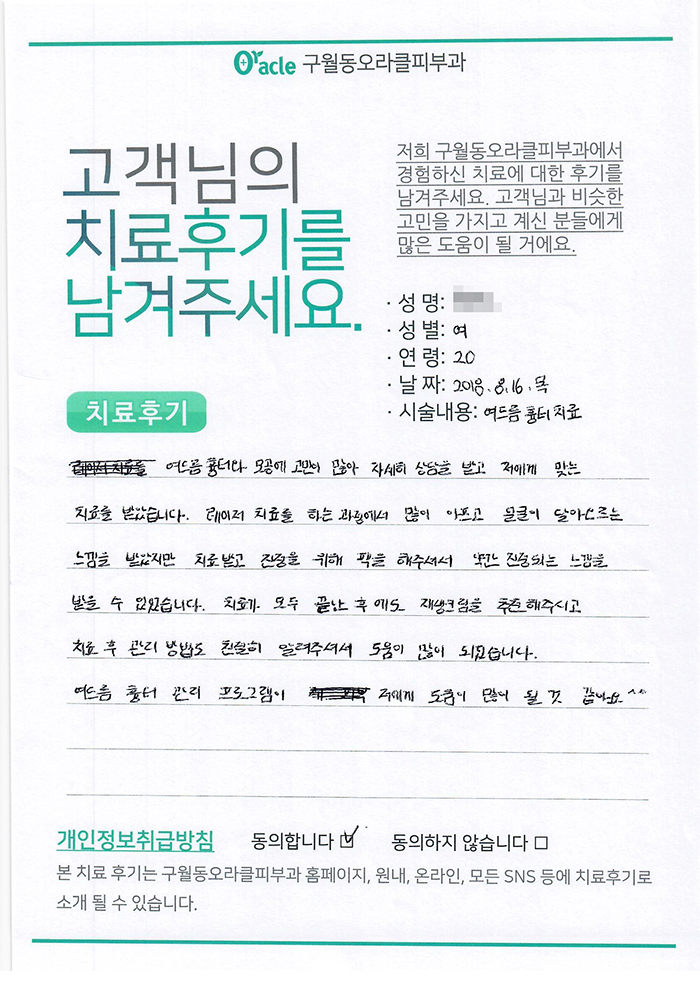 Oracle 구월동오라클피부과
고객님의
치료후기를
남겨주세요.
저희 구월동오라클피부과에서
경험하신 치료에 대한 후기를
남겨주세요. 고객님과 비슷한
고민을 가지고 계신 분들에게
많은 도움이 될 거에요.
· 성 명:
· 성 별: 여
· 연 령: 20
· 날 짜: 2018. 8. 16. 목
· 시술내용: 여드름 흉터 치료
치료후기
여드름 흉터와 모공에 고민이 많아 자세히 상담을 받고 저에게 맞는
치료를 받았습니다. 레이저 치료를 하는 과정에서 많이 아프고 얼굴이 달아오르는
느낌을 받았지만 치료받고 진정을 위해 팩을 해주셔서 약간 진정되는 느낌을
받을 수 있었습니다. 치료가 모두 끝난 후에도 재생크림을 추천해주시고
치료 후 관리 방법도 친절히 알려주셔서 도움이 많이 되었습니다.
여드름 흉터 관리 프로그램이 저에게 도움이 많이 될 것 같아요^^
개인정보취급방침 동의합니다 ☑ 동의하지 않습니다 □
본 치료 후기는 구월동오라클피부과 홈페이지, 원내, 온라인, 모든 SNS 등에 치료후기로
소개 될 수 있습니다.